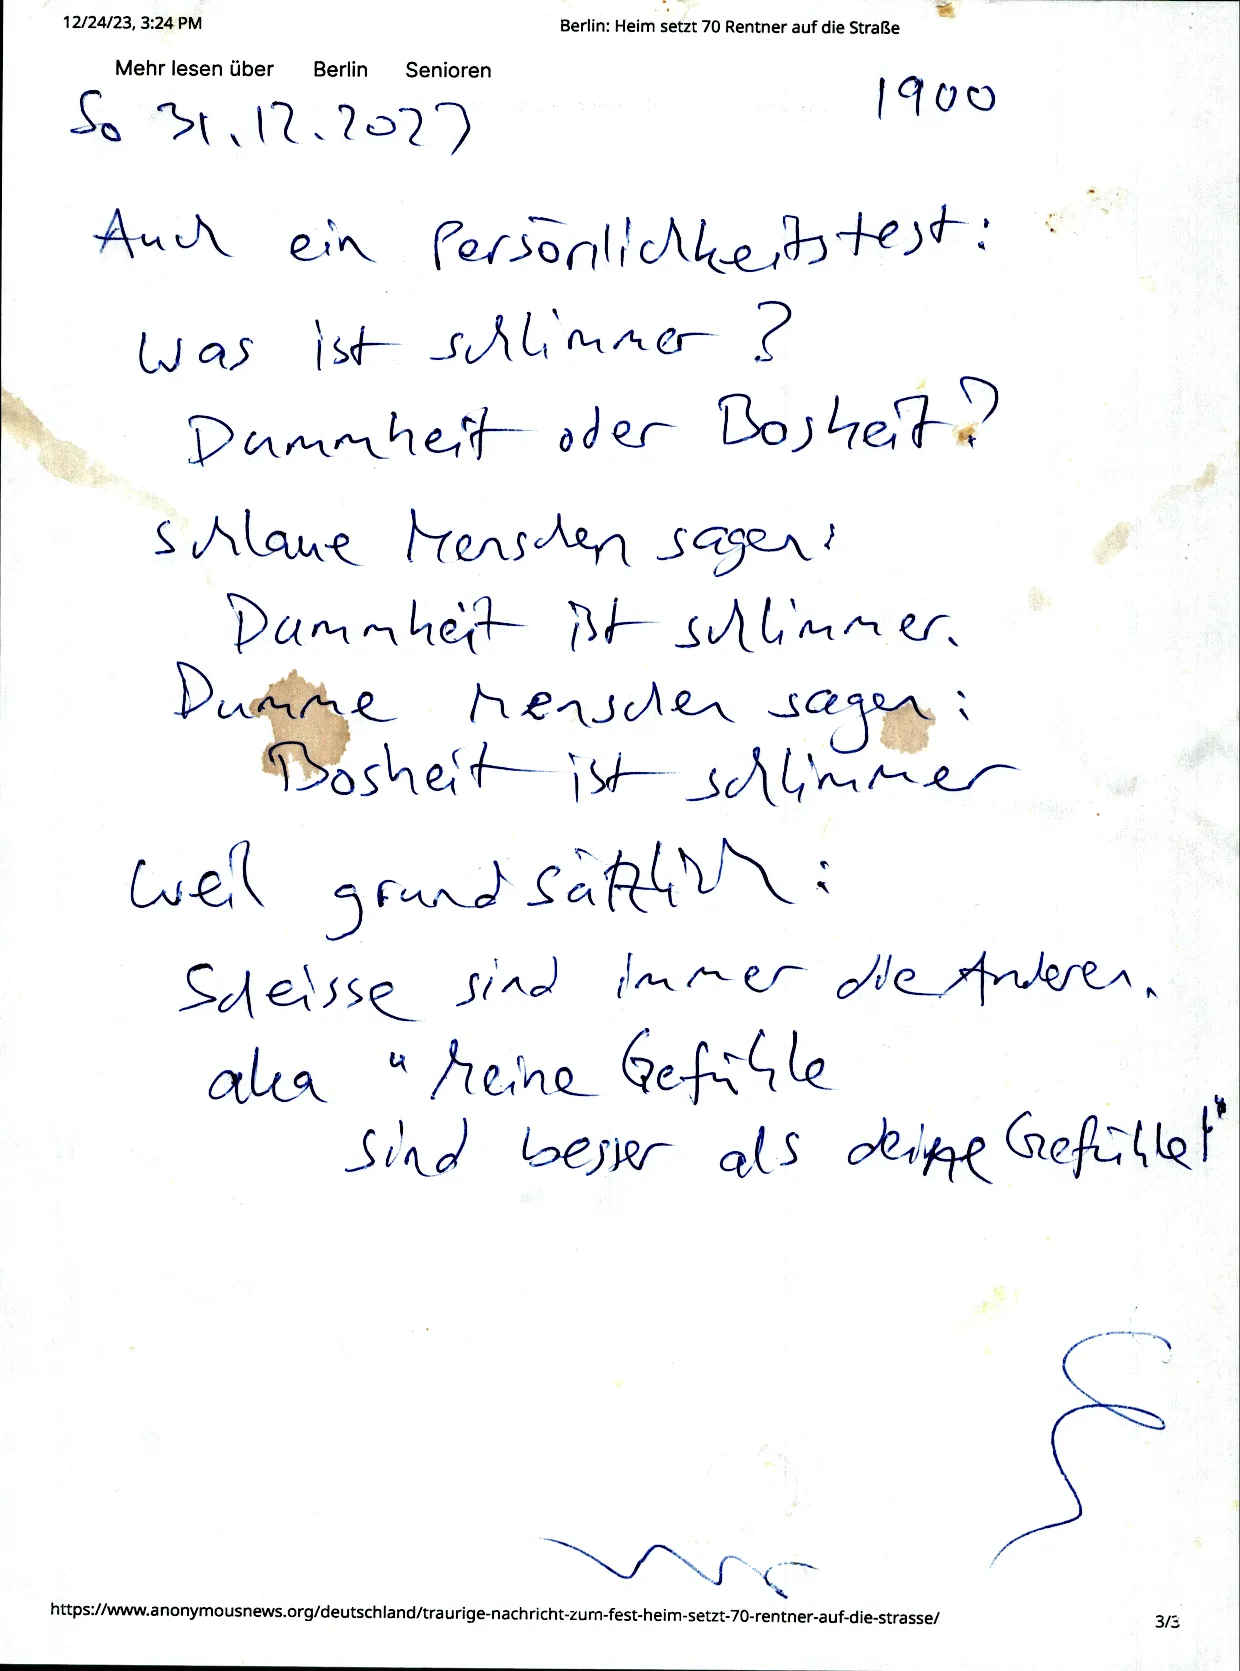 12/24/23, 3:24 PM Berlin: Heim setzt 70 Rentner auf die Straße
Mehr lesen über Berlin Senioren
So 31.12.2023 1900
Auch ein Persönlichkeitstest:
Was ist schlimmer?
Dummheit oder Bosheit?
schlaue Menschen sagen:
Dummheit ist schlimmer.
Dumme Menschen sagen:
Bosheit ist schlimmer
weil grundsätzlich:
Scheisse sind immer die Anderen.
aka "Meine Gefühle
sind besser als deine Gefühle!"
https://www.anonymousnews.org/deutschland/traurige-nachricht-zum-fest-heim-setzt-70-rentner-auf-die-strasse/ 3/3